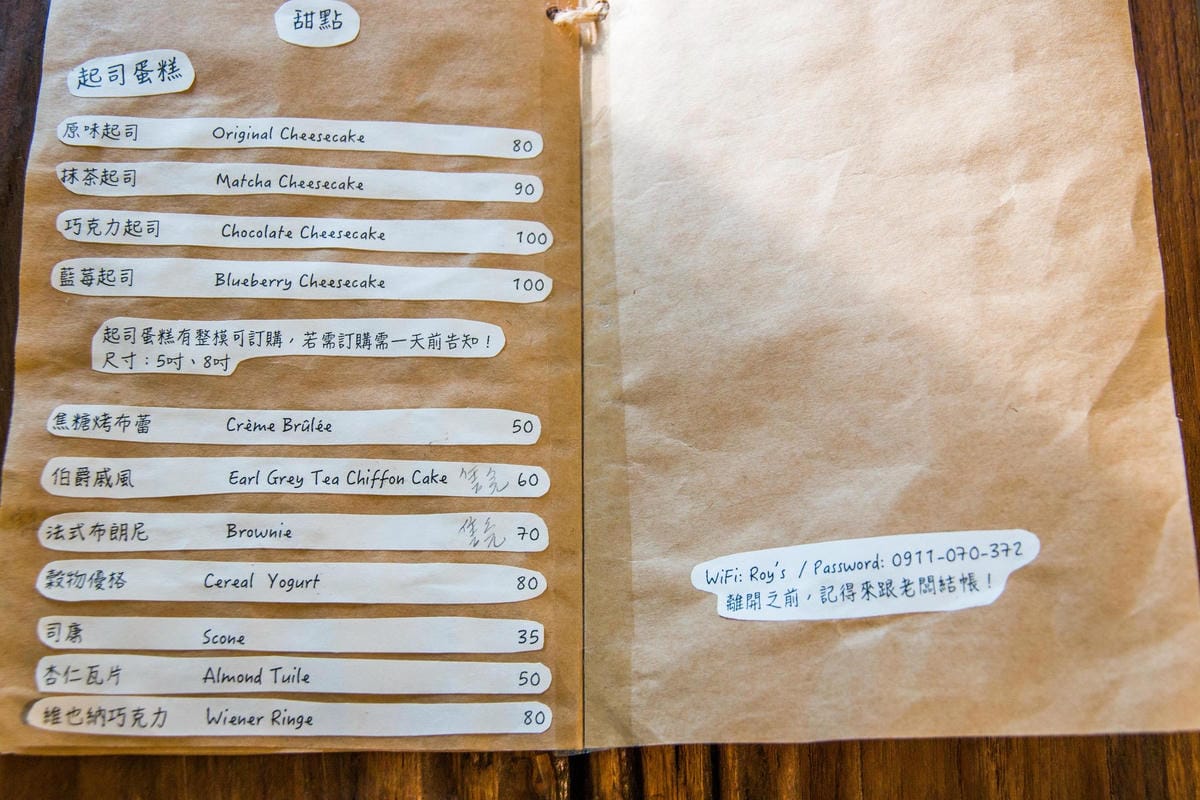 甜點
起司蛋糕
原味起司 Original Cheesecake 80
抹茶起司 Matcha Cheesecake 90
巧克力起司 Chocolate Cheesecake 100
藍莓起司 Blueberry Cheesecake 100
起司蛋糕有整模可訂購，若需訂購需一天前告知！
尺寸：5吋、8吋
焦糖烤布蕾 Crème Brûlée 50
伯爵戚風 Earl Grey Tea Chiffon Cake 售完 60
法式布朗尼 Brownie 售完 70
穀物優格 Cereal Yogurt 80
司康 Scone 35
杏仁瓦片 Almond Tuile 50
維也納巧克力 Wiener Ringe 80
WiFi: Roy's / Password: 0911-070-372
離開之前，記得來跟老闆結帳！